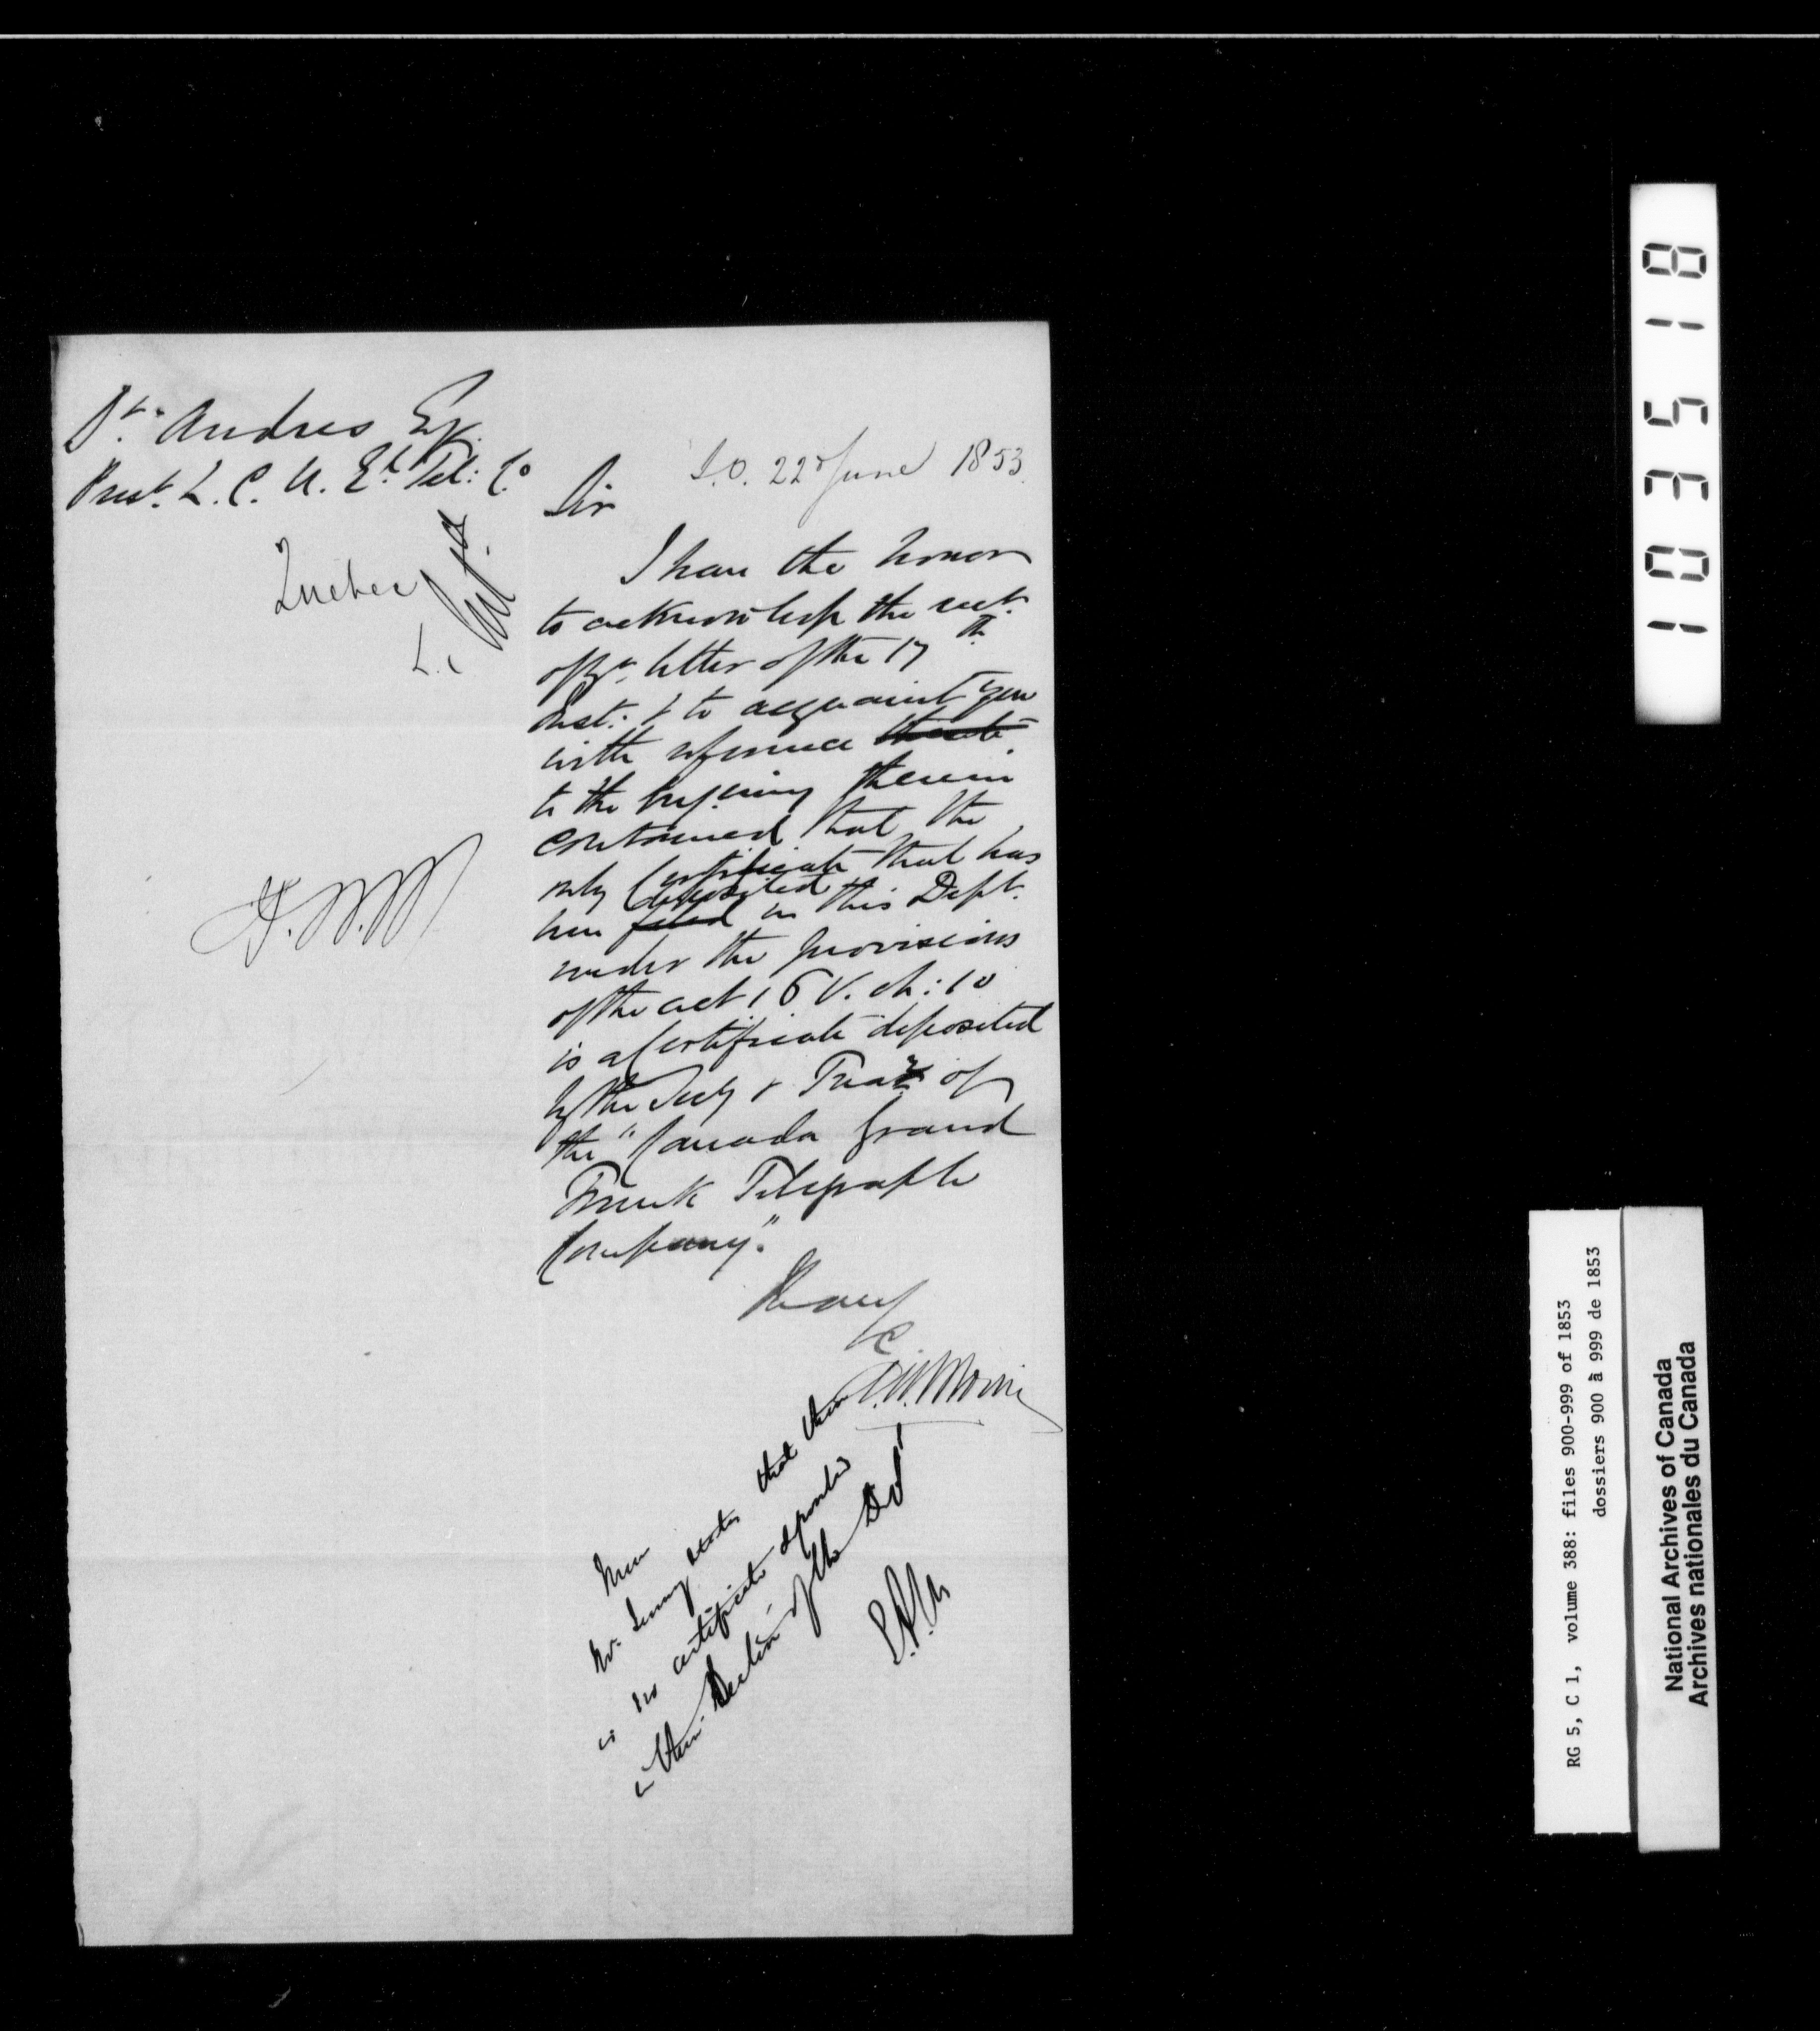 Andres Esq.
Prest. L. C. El. Tel: Co
Quebec
L.C
S.O. 22d June 1853.
Sir
I have the honor
to acknowledge the rect.
of yr. letter of the 17th
Inst: & to acquaint you
with reference thereto
to the Inquiry therein
contained that the
only Certificate that has
been filed deposited in this Dept.
under the provisions
of the act 16 V. ch: 10
is a Certificate deposited
by the Secy & Treasr. of
the "Canada Grand
Trunk Telegraph
Company."
I have
&c
A.N. Morin
A.N.M
Mem
Mr. states that there
is no certificate deposited
in their Section of the
103518
RG 5, C 1, volume 388: files 900-999 of 1853
dossiers 900 à 999 de 1853
National Archives of Canada
Archives nationales du Canada